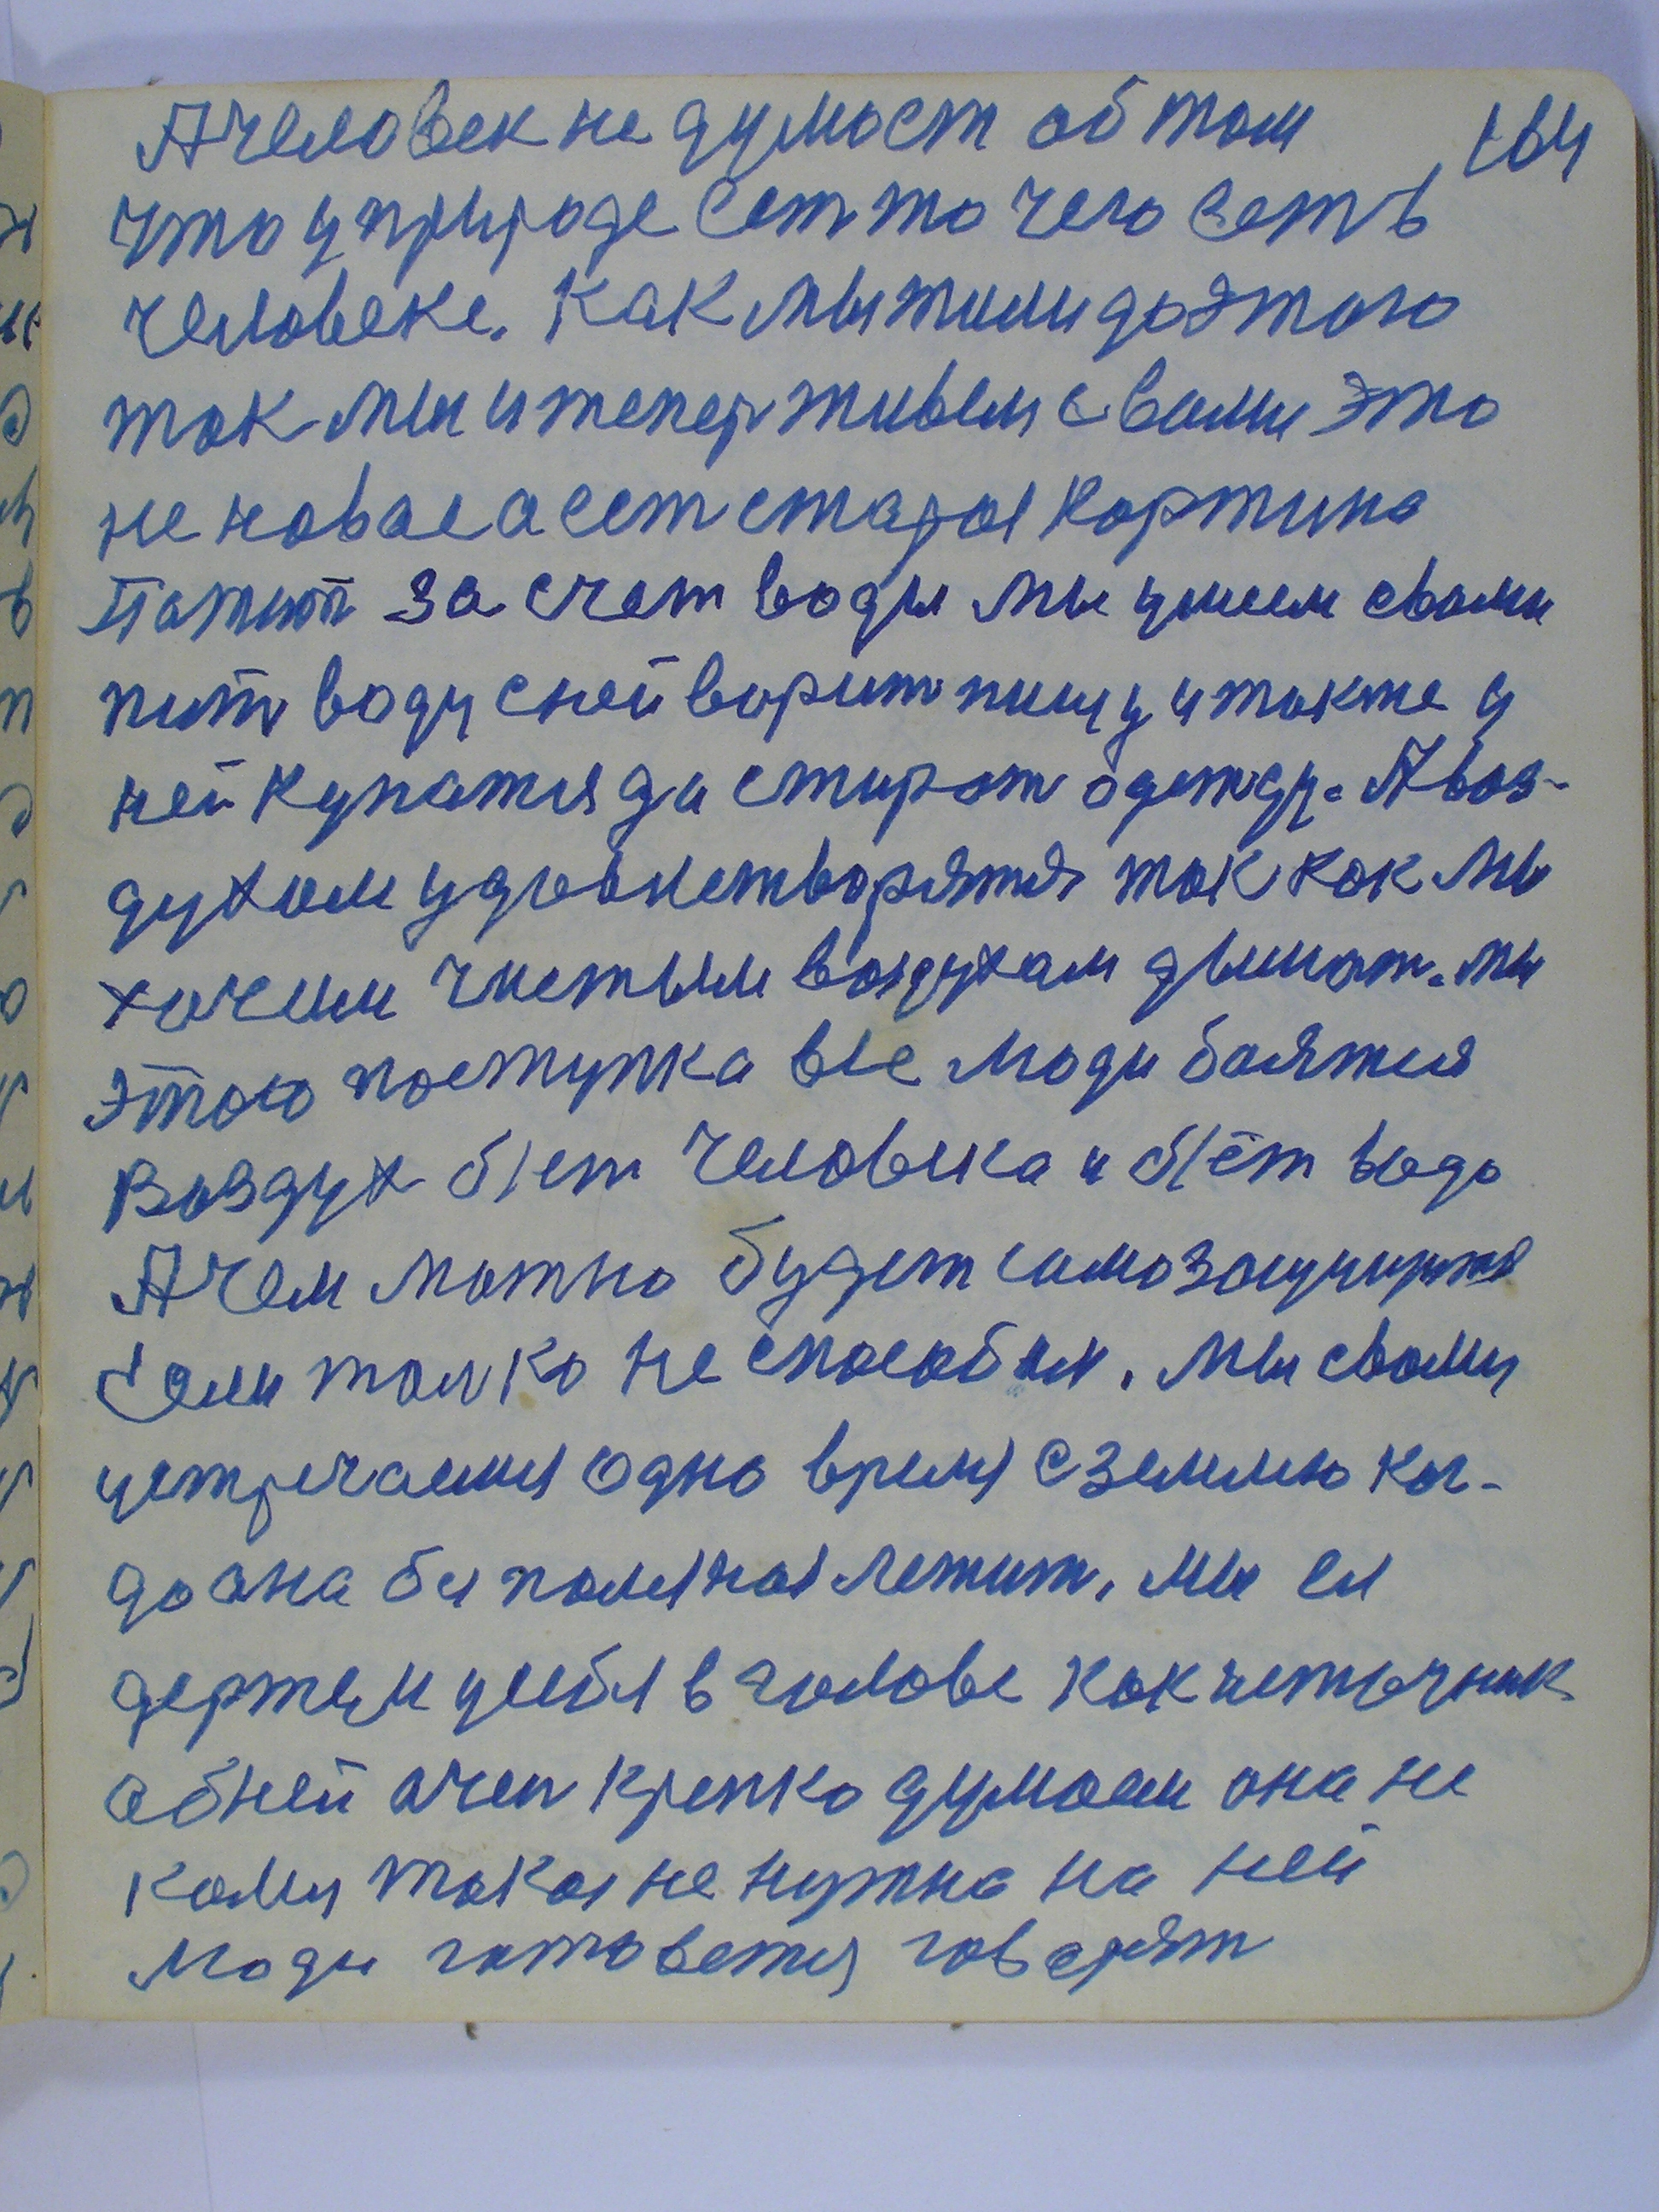 164
А человек не думает об том
что у природе ест то чего ест в
человеке. Как мы жили до этого
так мы и тепер живем с вами это
не новае а ест старая картина
Пажют за счет воды мы умеем свами
пит воду с ней варит пищу и также у
ней купатся да стират одежду. А воз-
духом удовнетворятся так как мы
хочеим чистым воздухам дышат. мы
этого поступка все люди боятся
Воздух б|ет человека и б|ёт вода
А чем можно будет самозащищятся
Если толко не способам. мы свами
устречаемся одно время с землею ког-
да она бы поляная лежит. мы ея
держем у себя в голове как источник
об ней очен крепко думаем она не
кому такая не нужна на ней
люди готовется говорят